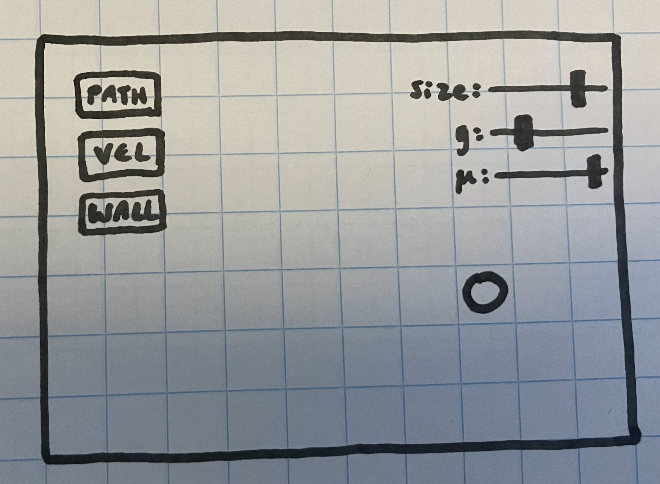 PATH
VEL
WALL
size:
g:
μ: